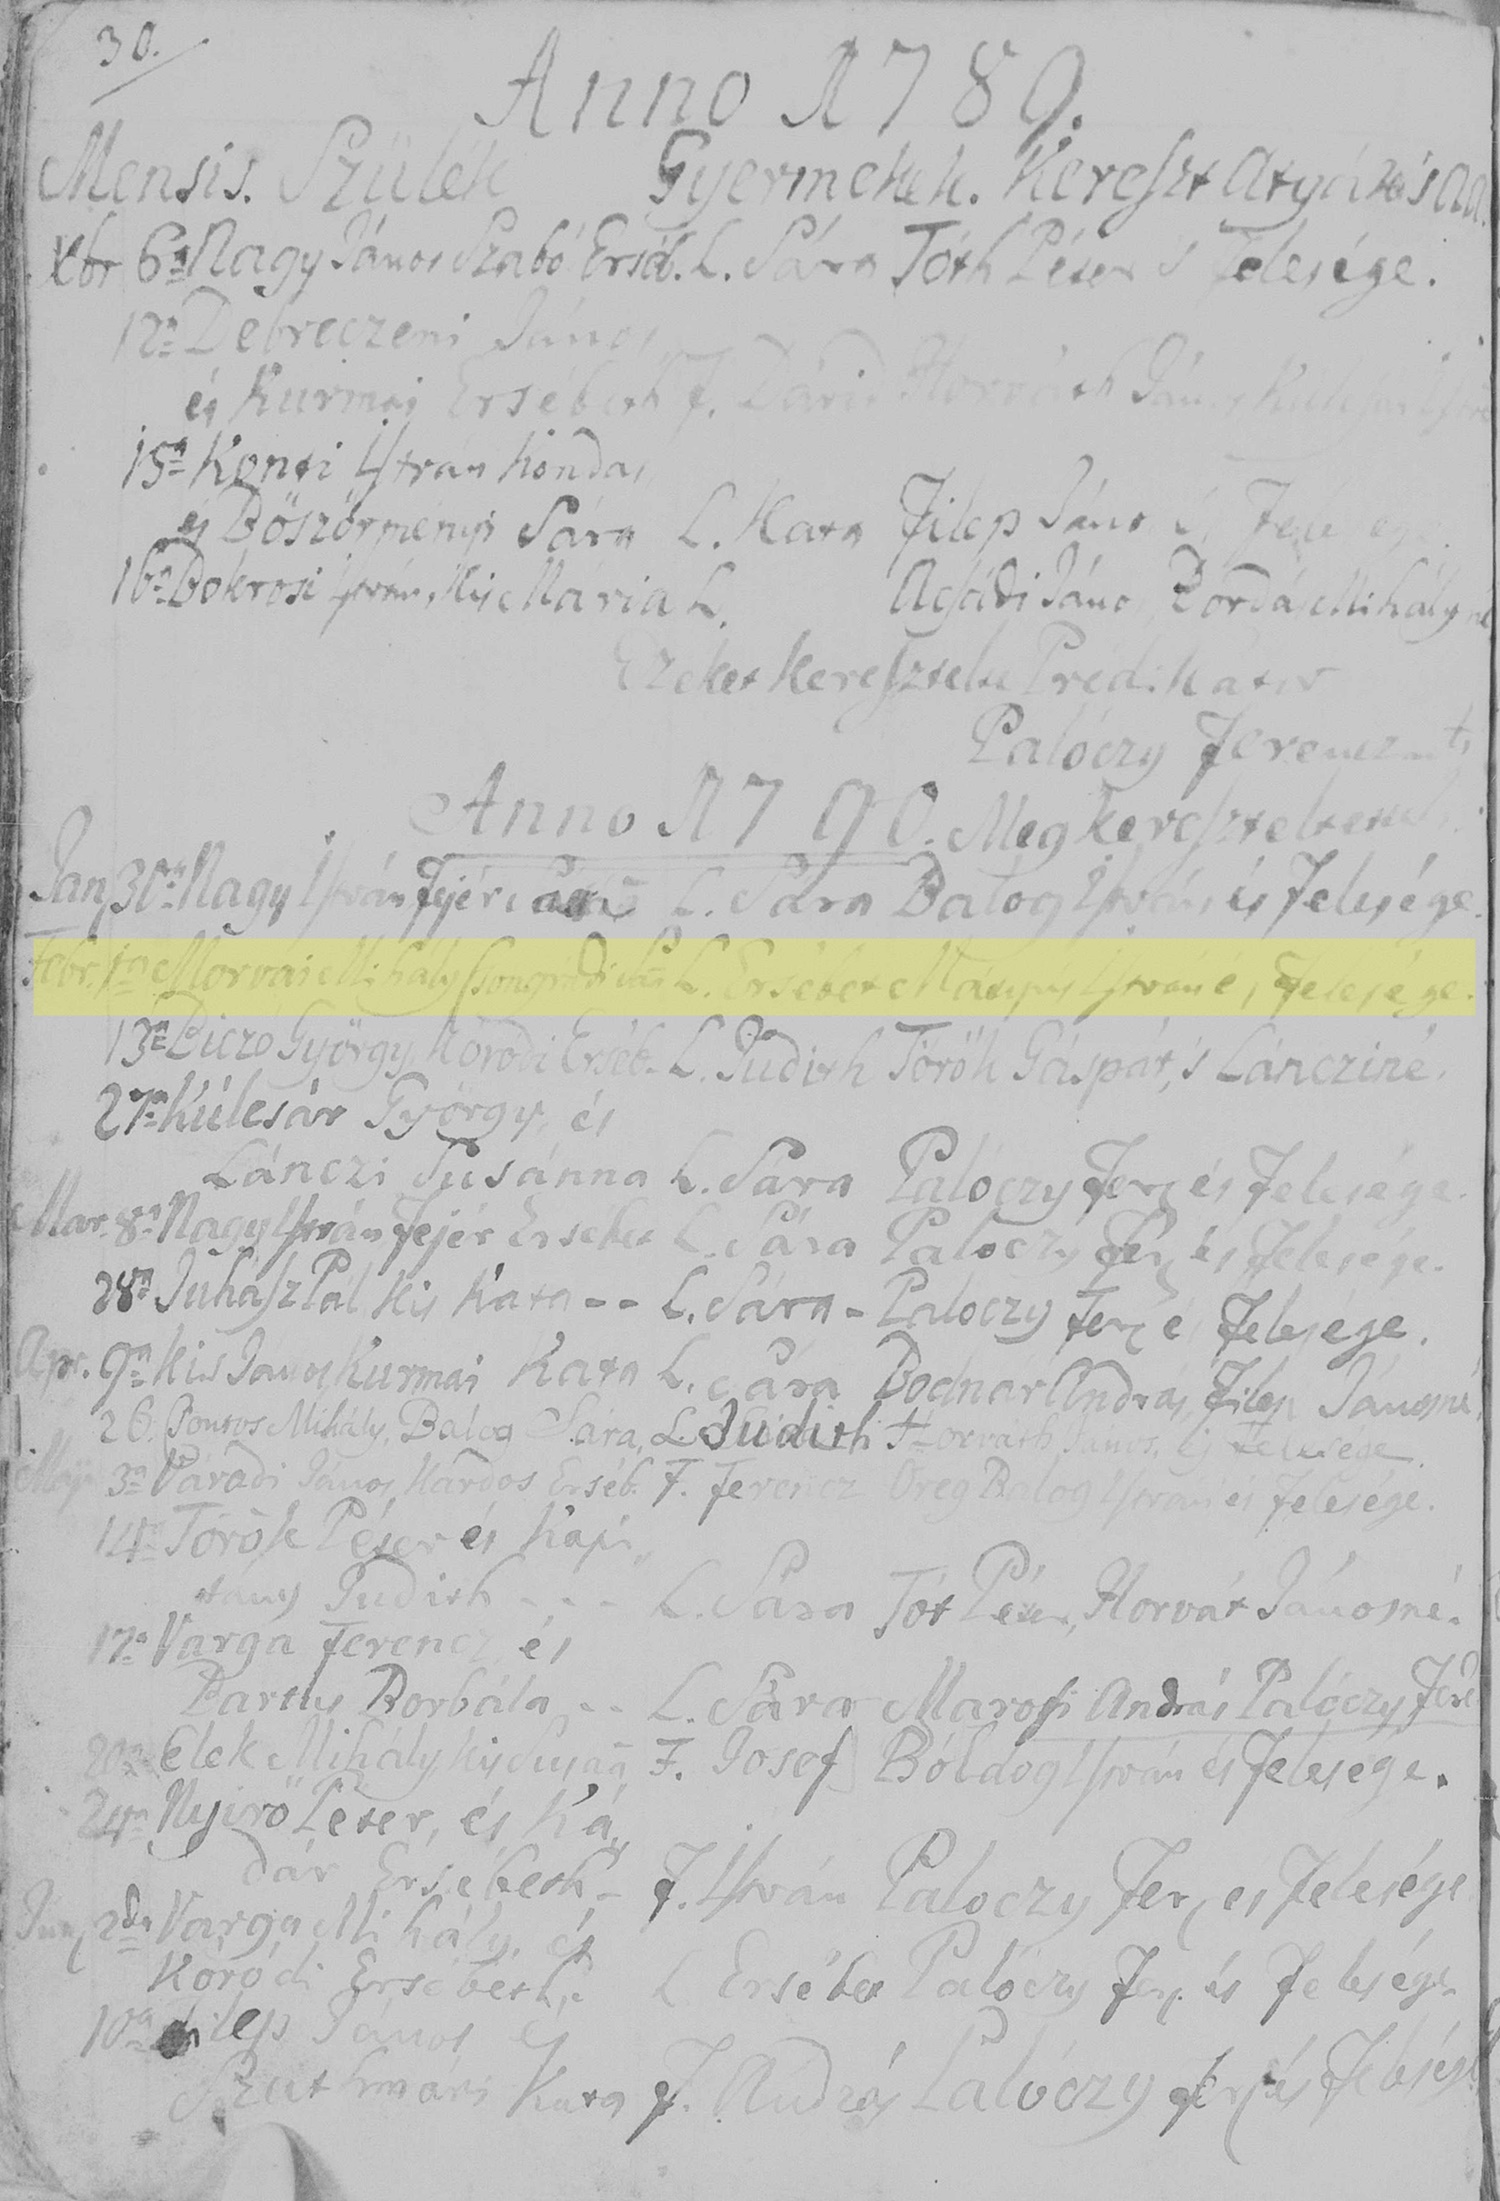 30.
Anno 1789.
Mensis. Szülék Gyermekek. Kereszt Atyák és AA.
Xbr 6a Nagy János Szabó Erséb. L. Sára Tóth Péter 's Felesége.
12a Debreczeni János
és Kurmai Ersébeth F. Dávid Horváth János
15a Kenti Istvan Kondás
és Böszörményi Sára L. Kata Filep János
16a Bokrosi István, Kis Mária L. Acsádi János Bordás Mihályné
Ezeket Keresztelte Prédikátor
Palóczy Ferencz
Anno 1790. Megkereszteltettek
Jan 30a Nagy István Fejér L. Sára Balog István és Felesége.
Febr. 1a Morvai Mihály Csongrádi L. Ersébet István é, Felesége.
13a Biczó György, Kóródi Erséb. L. Judith Török Gáspár, 's Láncziné.
27a Kúlcsár György, és
Lánczi Susánna L. Sára Palóczy Fer. és Felesége.
Mar. 8a Nagy István Fejér Ersébet L. Sára Palóczy Fer. és Felesége.
28a Juhász Pál Kis Kata -- L. Sára - Palóczy Fer. é Felesége.
Apr. 9a Kis János, Kurmai Kata L. Sára Bodnár András, Filep Jánosné,
26. Pontos Mihály, Balog Sára, L. Judith Horváth János, és Felesége
Maj 3a Váradi János Kardos Erséb. F. Ferencz Öreg Balog István és Felesége.
14a Török Péter és Kapi
tány Judith - - - L. Sára Tót Péter, Horvát Jánosné.
17a Varga Ferencz és
Bartus Borbála -- L. Sára Marosi András Palóczy
20a Elek Mihály, Kis Susañ F. Josef Bóldog István és Felesége.
24a Nyirö Péter, és Ká
dár Ersébeth, - F. István Palóczy Fer. es Felesége
Jun. 2da Varga Mihály, és
Kóródi Ersébeth, L. Ersébet Palóczy Fer. és Felesége
10a Filep János és
Szathmári Kata F. András Palóczy Fer. és Felesége